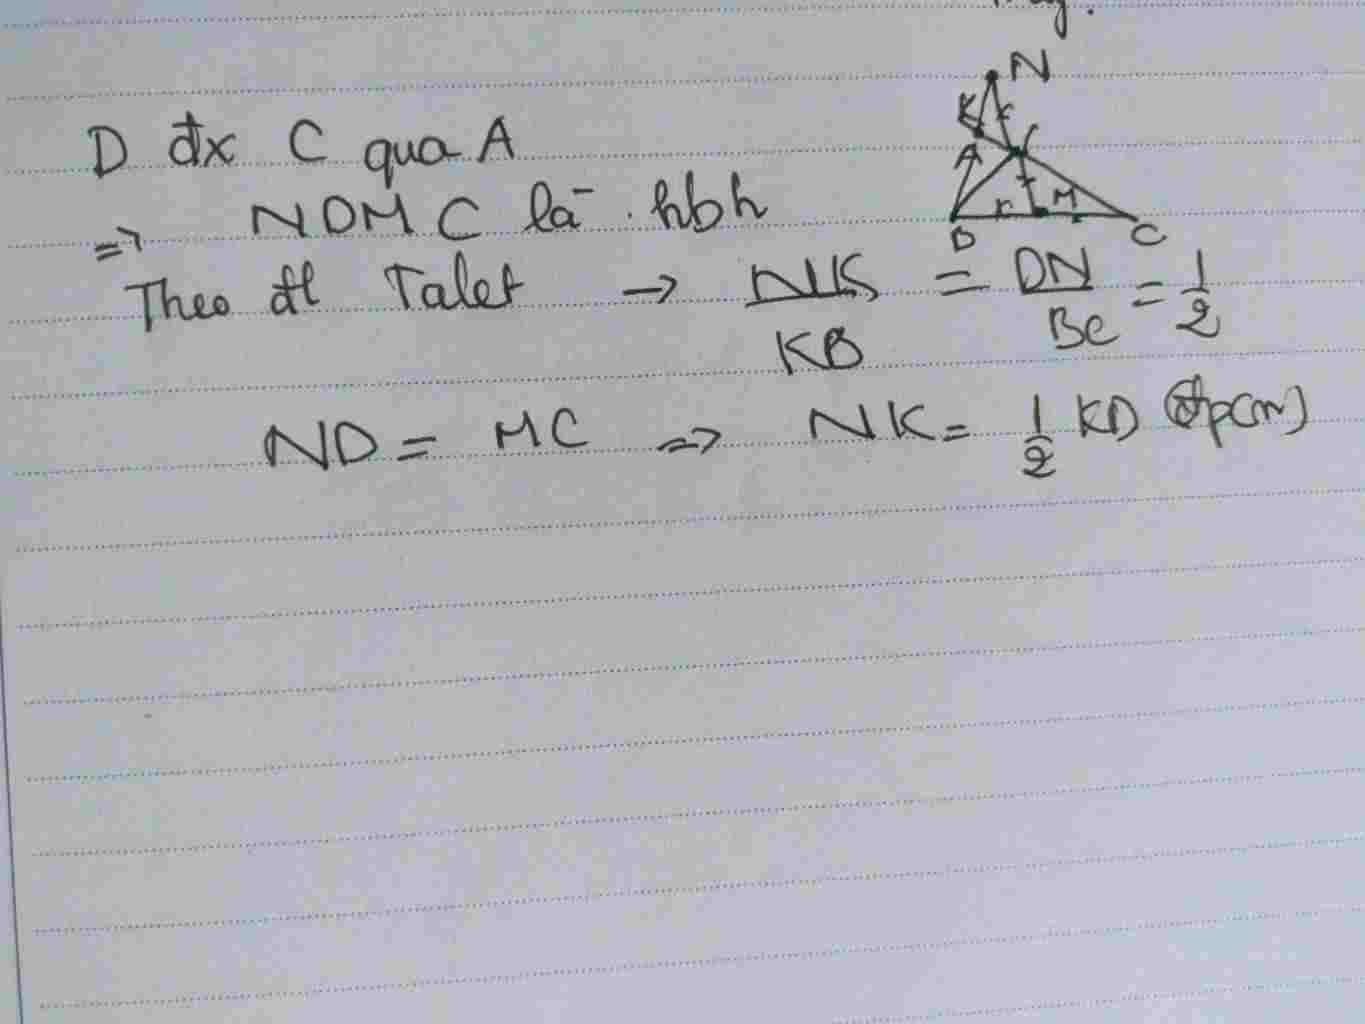 D đx C qua A
=> NDMC là hbh
Theo đl Talet → NK/KB = DN/BC = 1/2
ND = MC => NK = 1/2 KD (đpcm)
N
K
A
M
B
C